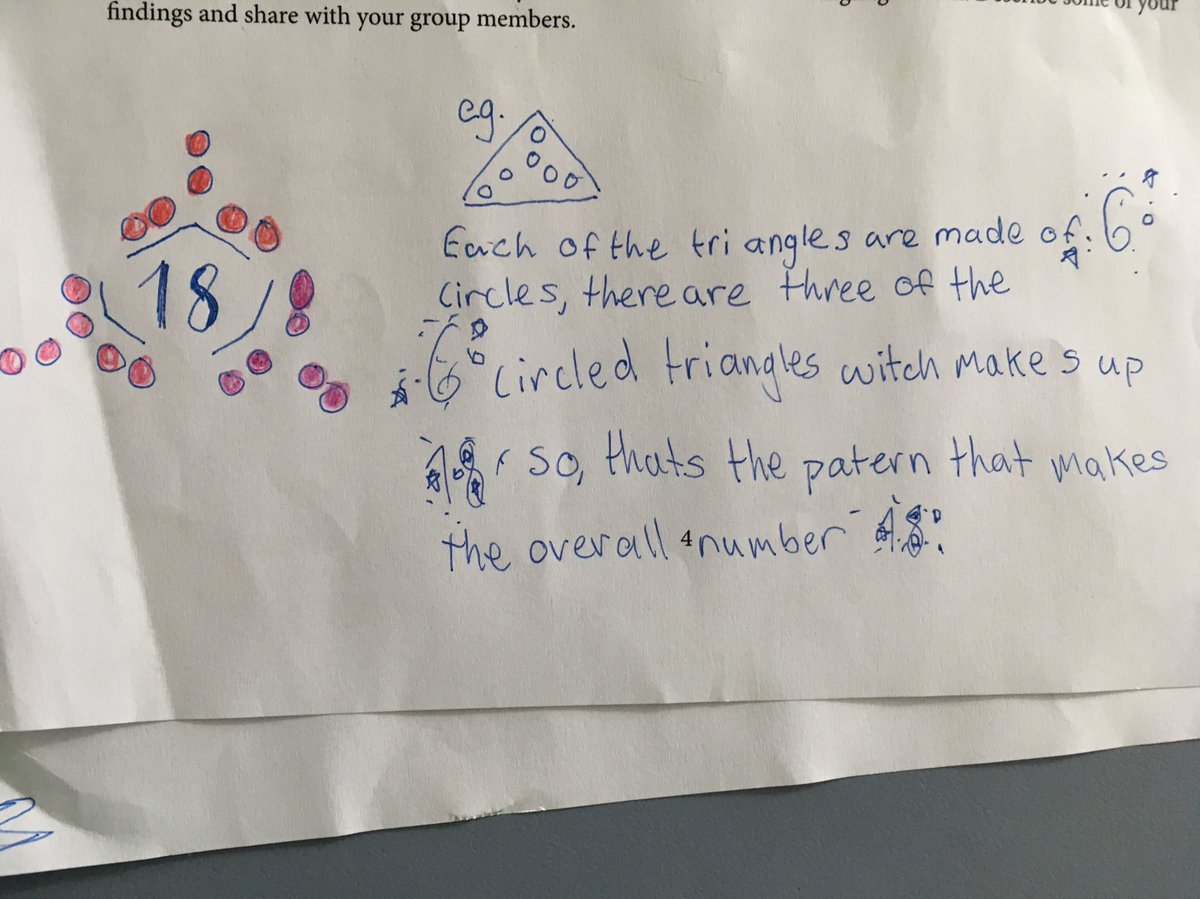 of your
findings and share with your group members.
e.g.
18
Each of the triangles are made of: 6
circles, there are three of the
6 circled triangles witch makes up
18 so, thats the patern that makes
the overall number 18.
4